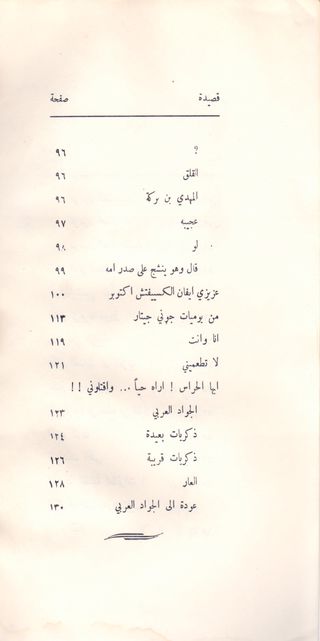 قصيدة صفحة
؟ ٩٦
القلق ٩٦
المهدي بن بركة ٩٦
عجيبه ٩٧
لو ٩٨
قال وهو ينشج على صدر امه ٩٩
عزيزي ايفان الكسيفتش اكتوبر ١٠٠
من يوميات جوني جيتار ١١٣
انا وانت ١١٩
لا تطعميني ١٢١
ايها الحراس ! اراه حياً ... واقتلوني ! !
الجواد العربي ١٢٣
ذكريات بعيدة ١٢٤
ذكريات قريبة ١٢٦
العار ١٢٨
عودة الى الجواد العربي ١٣٠